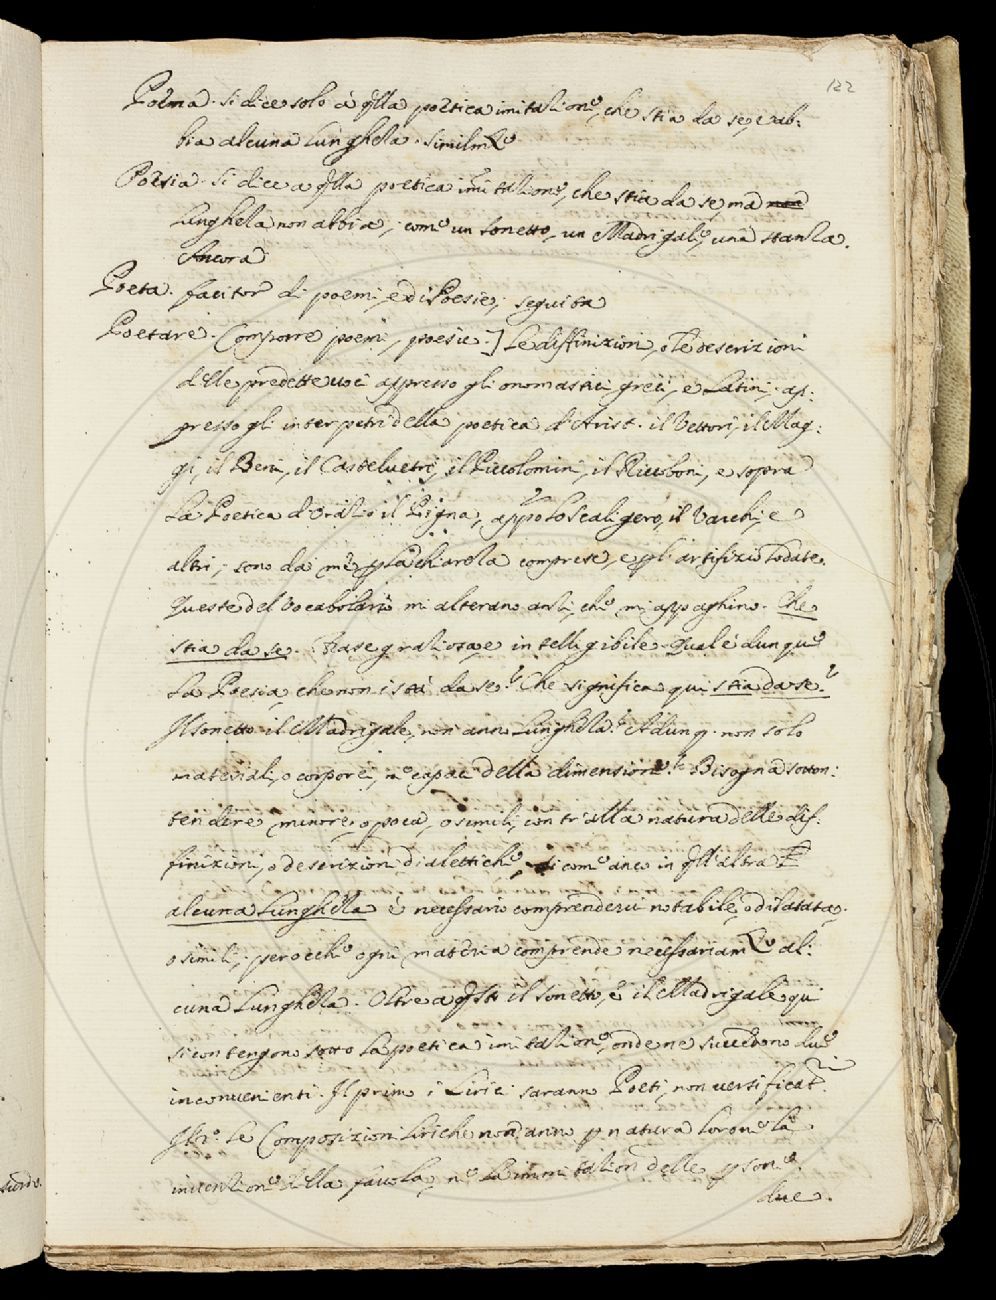 122
Poema. si dice solo a qlla poetica imitazione, che stia da se, e ab-
bia alcuna lunghezza. similmte
Poesia. si dice a qlla poetica imitazione, che stia da se, ma non
lunghezza non abbia, come un sonetto, un Madrigale, una stanza.
Ancora
Poeta. facitor di poemi, e di Poesie; seguita
Poetare. Comporre poemi, poesie.] Le diffinizioni, o le descrizioni
delle predette voci appresso gli onomastici greci, e Latini; ap-
presso gli interpetri della poetica d'Arist. il Vettori, il Mag-
gi, il Beni, il Castelvetri, il Piccolomini, il Riccoboni, e sopra
la Poetica d'Orazio il Pigna, appo lo Scaligero, il Varchi, e
altri, sono da me p la chiarezza comprese, e p gli artifizii lodate.
Queste del Vocabolario mi alterano anzi, che mi appaghino. Che
stia da se. frase graziosa, e intelligibile. Qual è dunque
la Poesia, che non istà da se? Che significa qui stia da se?
Il sonetto il Madrigale, non anno lunghezza? Adunq. non solo
materiali, o corporei, ne capaci della dimensione? Bisogna sotton-
tendere, minore, o poca, o simili, contr'alla natura delle dif-
finizioni, o descrizioni dialettiche, di come anco in qll'altra
alcuna lunghezza è necessario comprendervi notabile, o dilatata,
o simili; perocche ogni materia comprende necessariamte al-
cuna lunghezza. Oltre a qsto il sonetto, e il Madrigale qui
si contengono sotto la poetica imitazione, onde ne succedono due
inconvenienti. Il primo i Lirici saranno Poeti, non versificat.ri
Il 2o. Le Composizioni liriche non anno p natura loro ne la
invenzione della favola, ne la immitazion delle psone.
due.